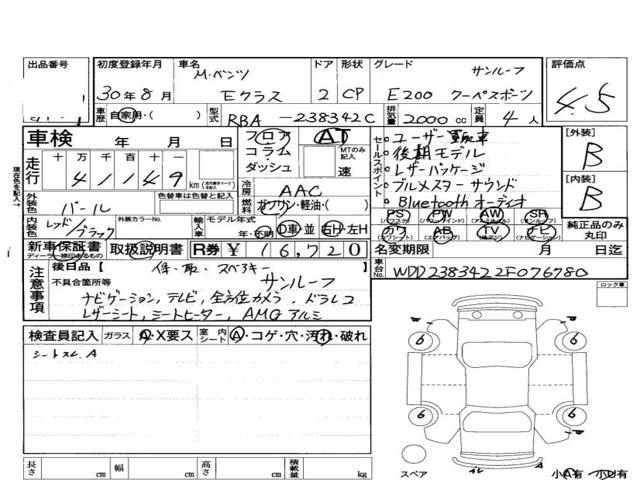 出品番号 初度登録年月 車名 ドア 形状 グレード 評価点
M・ベンツ サンルーフ
30年8月 Eクラス 2 CP E200 クーペスポーツ 4.5
車歴 自家用・( ) 型式 RBA -238342C 排気量 2000 cc 定員 4 人
車検 年 月 日 フロア AT
コラム MTのみ記入
ダッシュ 速
走行 十 万 千 百 十 一
4 1 1 4 9 km
冷房 AAC
燃料 ガソリン・軽油・( )
セールスポイント
ユーザー買取車
後期モデル
レザーパッケージ
ブルメスターサウンド
Bluetoothオーディオ
[外装] B
[内装] B
外装色 パール 色替車は色替と記入
内装色 レッド/ブラック 外装カラーNo. 輸入車 モデル年式 年・不明 D車・並 右H・左H
PS PW AW SR
カワ AB TV ナビ
純正品のみ丸印
新車保証書 取扱説明書 R券 ¥16,720
名変期限 月 日迄
車台No. WDD2383422F076780
注意事項
後日品 [ 保・取・スペアキー
不具合箇所等 サンルーフ
ナビゲーション、テレビ、全方位カメラ、ドラレコ
レザーシート、シートヒーター、AMGアルミ
ロック車
検査員記入 ガラス A・X要ス 室内シート A・コゲ・穴・汚れ・破れ
シートスレ A
6 6
6 6
スペア A
小A有 小U有
長さ cm 幅 cm 高さ cm 積載量 kg